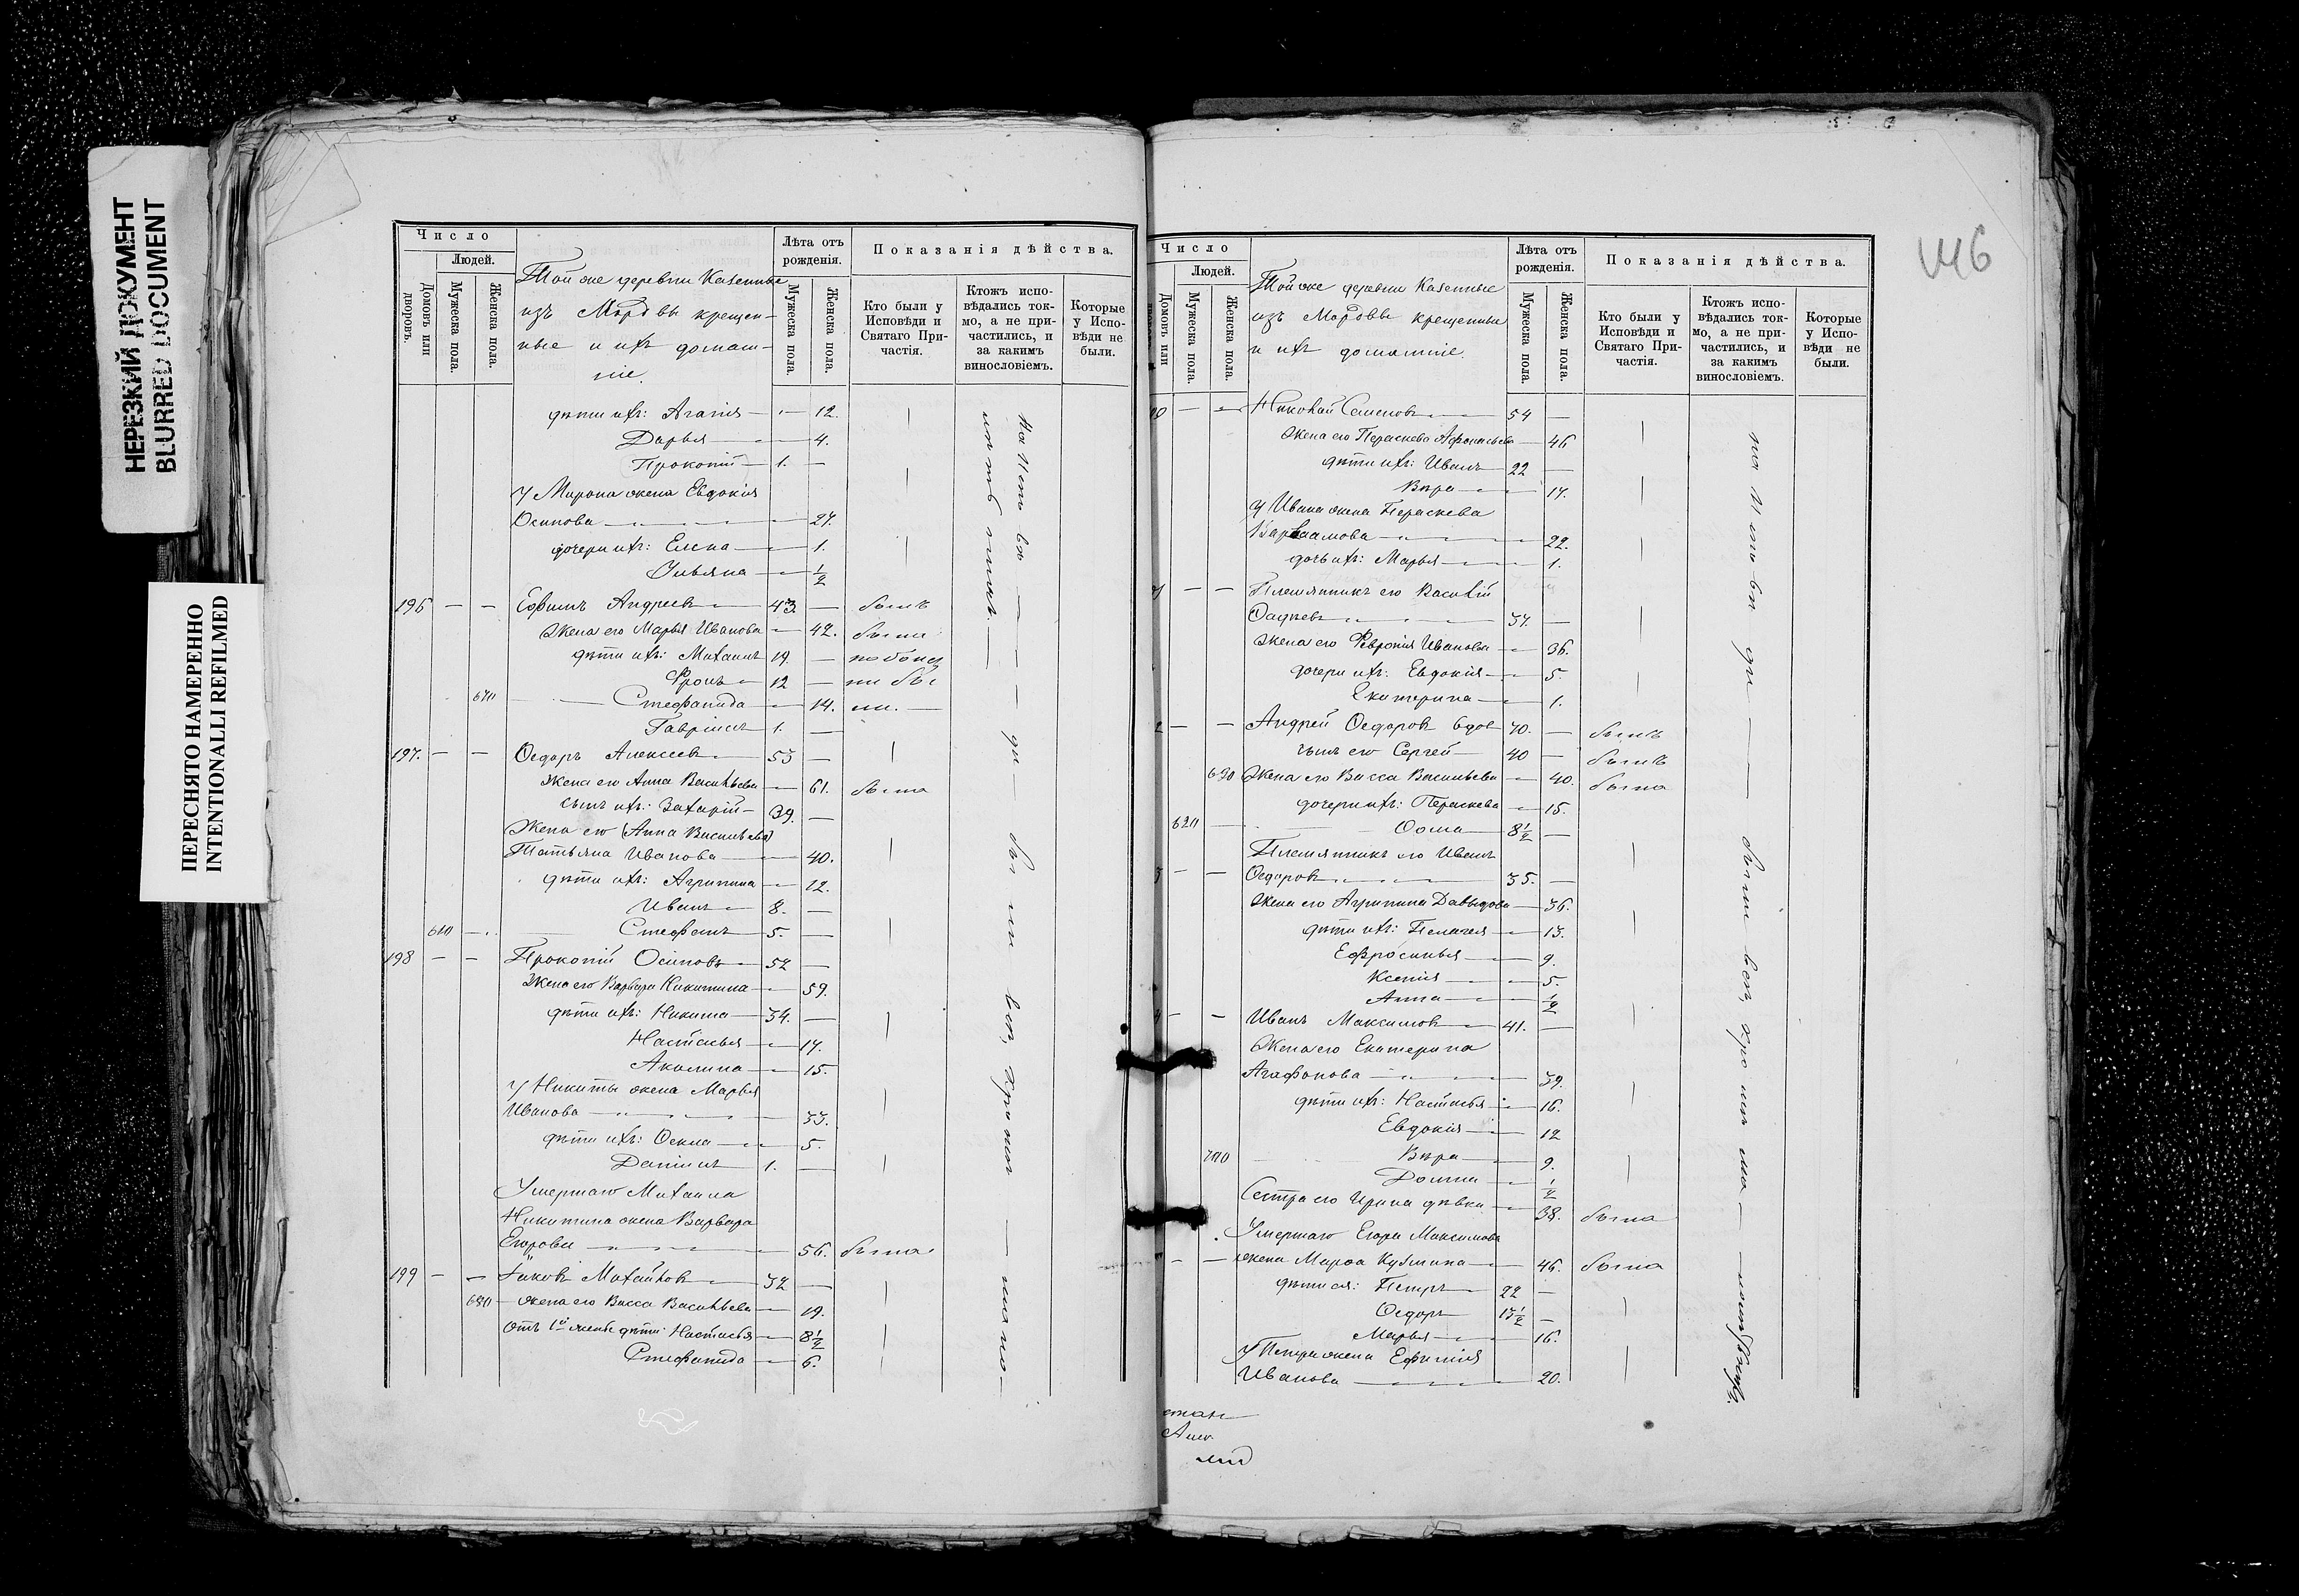 НЕРЕЗКИЙ ДОКУМЕНТ
BLURRED DOCUMENT
ПЕРЕСНЯТО НАМЕРЕННО
INTENTIONALLI REFILMED
Число
Людей.
Домовъ или дворовъ.
Мужеска пола.
Женска пола.
Той же деревни Казенные
изъ Мордвы крещен-
ные и ихъ домаш-
ніе.
Лѣта отъ рожденія.
Мужеска пола.
Женска пола.
Показанія дѣйства.
Кто были у Исповѣди и Святаго Причастія.
Ктожъ испо-
вѣдались ток-
мо, а не при-
частились, и
за какимъ
винословіемъ.
Которые у Исповѣди не были.
дѣти ихъ: Агапія — 12.
Дарья — 4.
Прокопій — 1. —
У Мирона жена Евдокія
Осипова — 27.
дочери ихъ: Елена — 1.
Ульяна — 1/2
196 — — Ефимъ Андреевъ — 43. — былъ
Жена его Марья Ивановна — 42. была
дѣти ихъ: Михаилъ 19. —
Фролъ 12 —
670 Стефанида — 14.
Гавріилъ 1. —
197. — — Ѳедоръ Алексеевъ — 53 —
Жена его Анна Васильева — 61. была
сынъ ихъ: Захарій — 39. —
Жена его (Анна Васильева)
Татьяна Иванова — 40.
дѣти ихъ: Агрипина — 12.
Иванъ — 8. —
610 Стефанъ — 5. —
198 — — Прокопій Осиповъ — 52 —
Жена его Варвара Никитина — 59.
дѣти ихъ: Никита — 34. —
Настасья — 17.
Акилина — 15.
У Никиты жена Марья
Иванова — 33.
дѣти ихъ: Ѳекла — 5.
Даніилъ 1. —
Умершаго Михаила
Никитина жена Варвара
Егорова — 56. была
199 — — Яковъ Михайловъ — 32 —
680 — жена его Васса Васильева — 19.
Отъ 1й жены дѣти: Настасья — 8 1/2
Стефанида — 6.
Число
Людей.
Домовъ или
Мужеска пола.
Женска пола.
Той же деревни Казенные
изъ Мордвы крещенные
и ихъ домашніе.
Лѣта отъ рожденія.
Мужеска пола.
Женска пола.
Показанія дѣйства.
Кто были у Исповѣди и Святаго Причастія.
Ктожъ испо-
вѣдались ток-
мо, а не при-
частились, и
за какимъ
винословіемъ.
Которые у Исповѣди не были.
Николай Семеновъ — 54 —
Жена его Пераскева Афонасьева — 46
дѣти ихъ: Иванъ — 22 —
Вѣра — 17.
У Ивана жена Пераскева
Варлаамова — 22.
дочь ихъ: Марья — 1.
Племянникъ его Василій
Ѳадѣевъ — 37. —
Жена его Февронія Иванова — 36.
дочери ихъ: Евдокія — 5.
Екатерина — 1.
Андрей Ѳедоровъ вдов 70. — былъ
сынъ его Сергей — 40 — былъ
690 Жена его Васса Васильева — 40. была
дочери ихъ: Пераскева — 15.
620 Ѳома — 8 1/2 —
Племянникъ его Иванъ
Ѳедоровъ — 35. —
Жена его Агрипина Давыдова — 36.
дѣти ихъ: Пелагея — 13.
Ефросинья — 9.
Ксенія — 5.
Анна — 1/2
Иванъ Максимовъ — 41. —
Жена его Екатерина
Агафонова — 39.
дѣти ихъ: Настасья — 16.
Евдокія — 12
700 Вѣра — 9.
Домна — 1/2
Сестра его Ирина дѣвка — 38. была
Умершаго Егора Максимова
— — жена Марѳа Кузмина — 46. была
дѣти ея: Петръ — 22 —
Ѳедоръ 13 1/2 —
Марья — 16.
У Петра жена Ефимія
Иванова — 20.